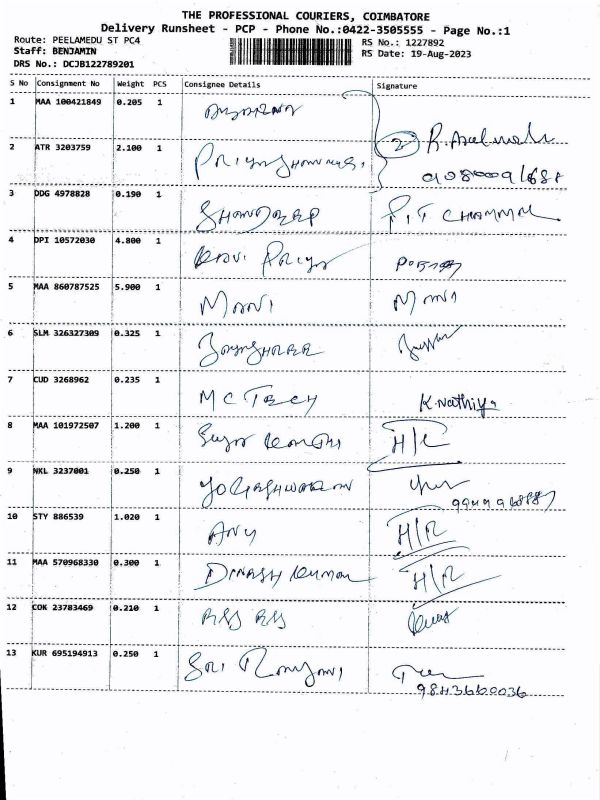 THE PROFESSIONAL COURIERS, COIMBATORE
Delivery Runsheet - PCP - Phone No.:0422-3505555 - Page No.:1
Route: PEELAMEDU ST PC4
RS No.: 1227892
Staff: BENJAMIN
RS Date: 19-Aug-2023
DRS No.: DCJB122789201
S No Consignment No Weight PCS Consignee Details Signature
1 MAA 100421849 0.205 1
2 ATR 3203759 2.100 1 2
3 DDG 4978828 0.190 1
4 DPI 10572030 4.800 1 Ravi Priya
5 MAA 860787525 5.900 1 Mani Mani
6 SLM 326327309 0.325 1
7 CUD 3268962 0.235 1 MC TECH K.Nathiya
8 MAA 101972507 1.200 1
9 NKL 3237001 0.250 1 YOGESHWARAN
10 STY 886539 1.020 1 ANU H/R
11 MAA 570968330 0.300 1 DINESH Kumar H/R
12 COK 23783469 0.210 1
13 KUR 695194913 0.250 1 Sri